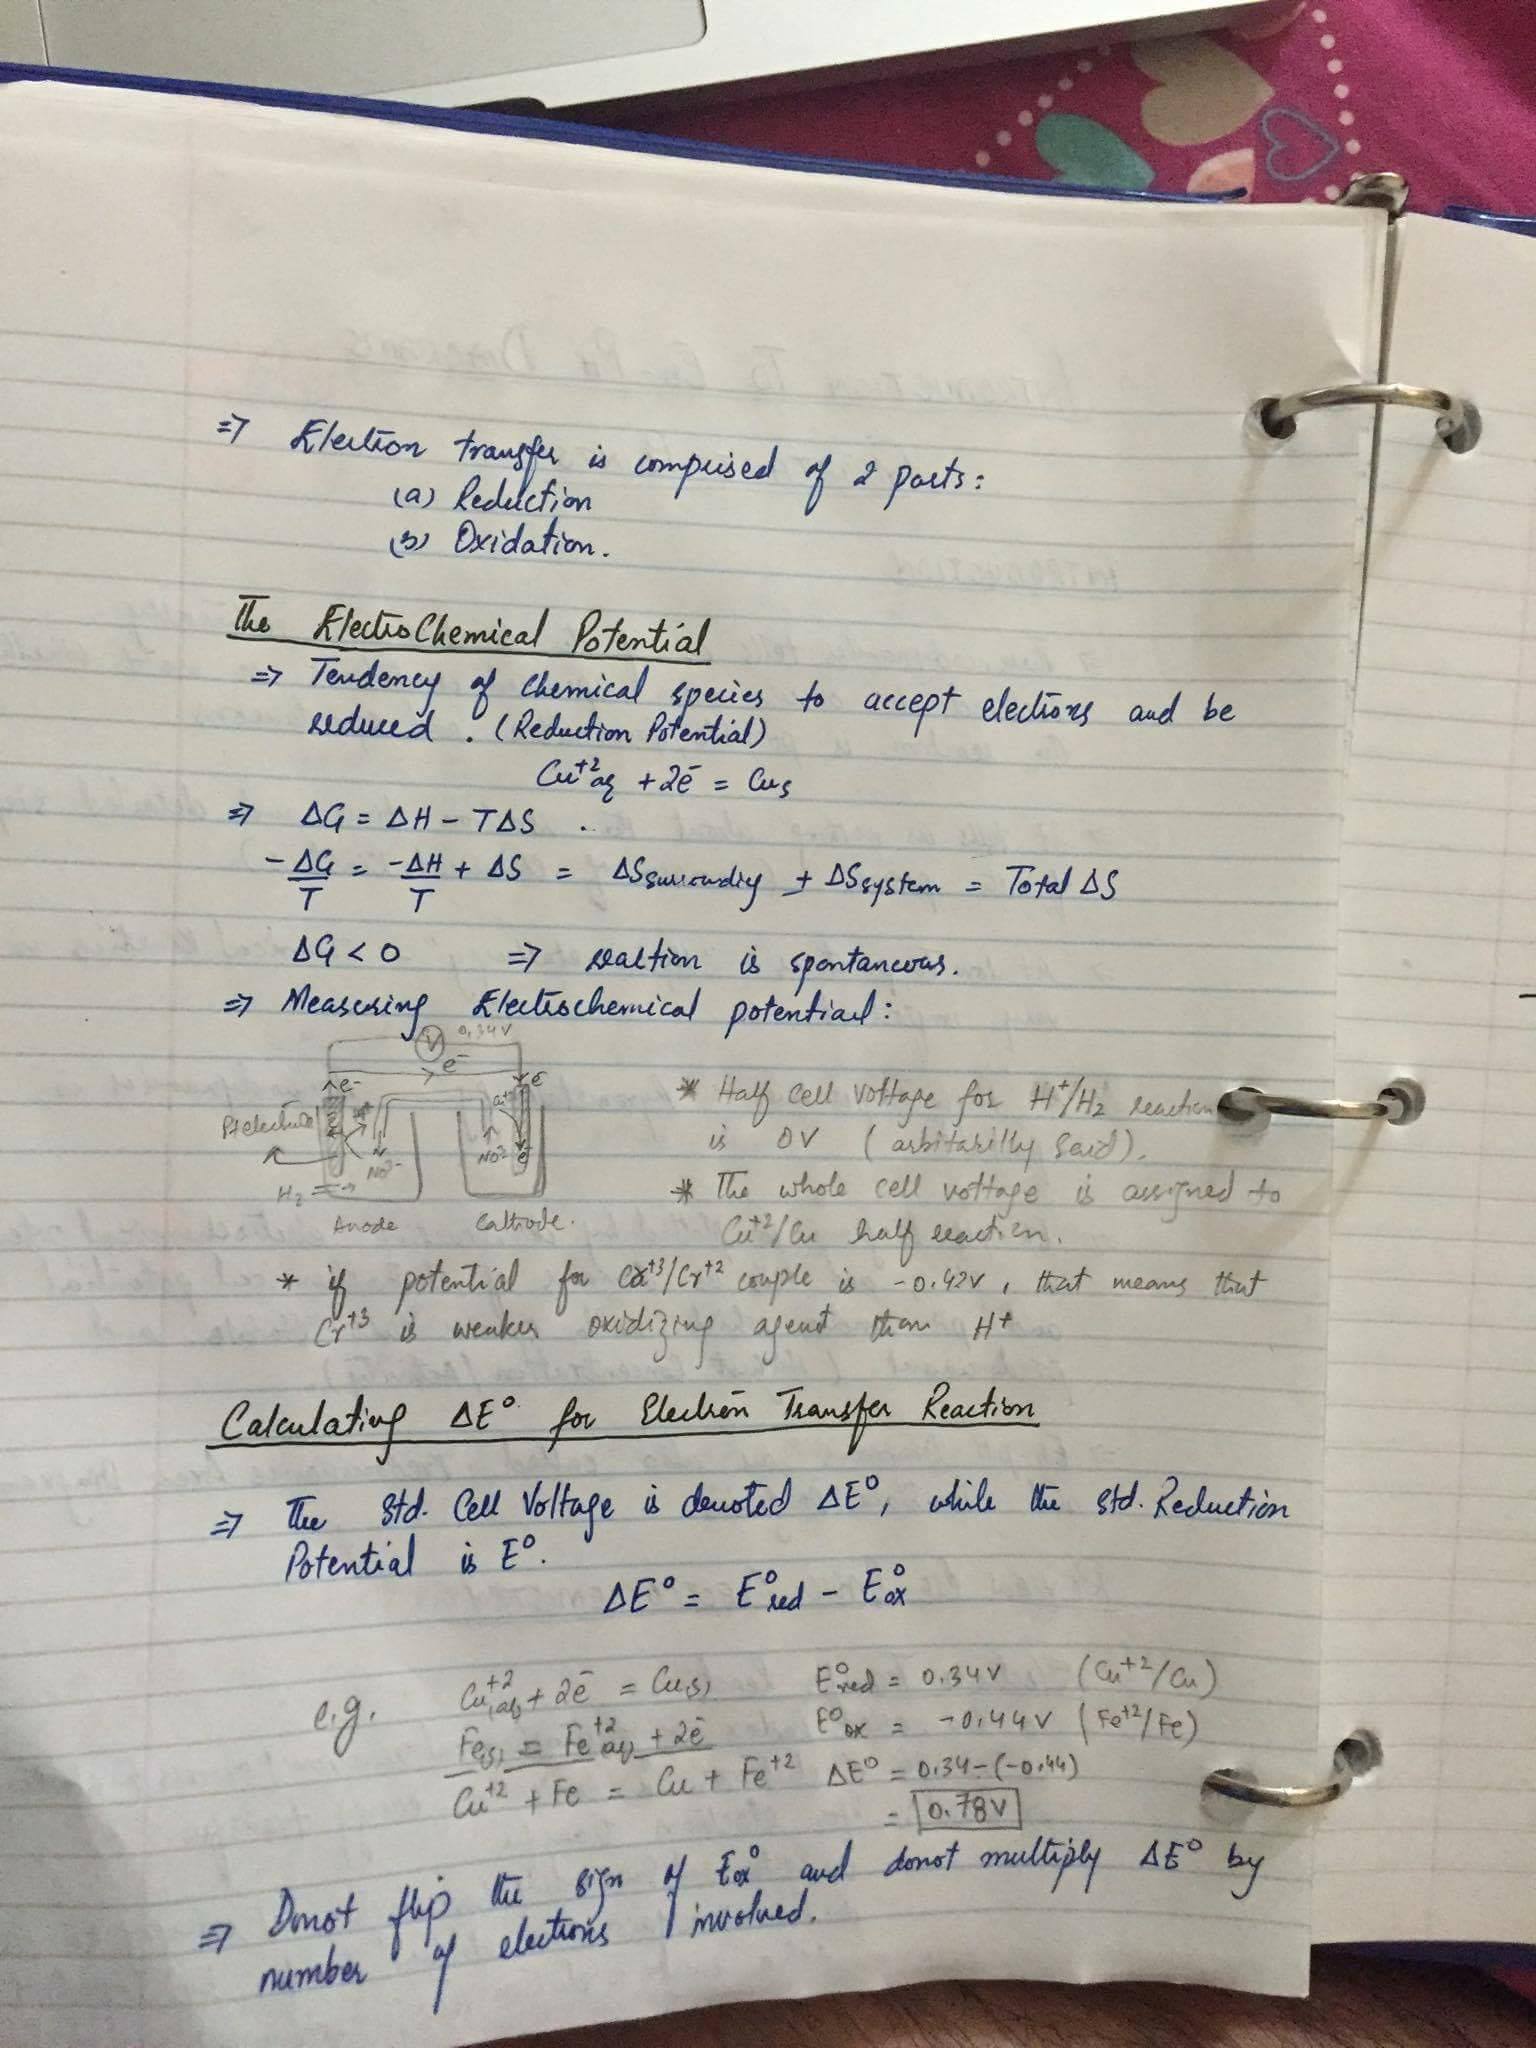 ⇒ Electron transfer is comprised of 2 parts:
(a) Reduction
(b) Oxidation.
The ElectroChemical Potential
⇒ Tendency of chemical species to accept electrons and be
reduced. (Reduction Potential)
Cu⁺²aq + 2ē = Cus
⇒ ΔG = ΔH - TΔS .
-ΔG/T = -ΔH/T + ΔS = ΔSsurrounding + ΔSsystem = Total ΔS
ΔG < 0 ⇒ reaction is spontaneous.
⇒ Measuring Electrochemical potential:
V 0.34V
e⁻
e⁻ e⁻
Pt electrode
NO³⁻ NO³⁻
H₂
Anode Cathode.
* Half cell voltage for H⁺/H₂ reaction
is 0V (arbitarilly said).
* The whole cell voltage is assigned to
Cu⁺²/Cu half reaction.
* if potential for Cr⁺³/Cr⁺² couple is -0.42V, that means that
Cr⁺³ is weaker oxidizing agent than H⁺
Calculating ΔE° for Electron Transfer Reaction
⇒ The Std. Cell Voltage is denoted ΔE°, while the std. Reduction
Potential is E°.
ΔE° = E°red - E°ox
e.g. Cu⁺²(aq) + 2ē = Cu(s) E°red = 0.34V (Cu⁺²/Cu)
Fe(s) = Fe⁺²(aq) + 2ē E°ox = -0.44V (Fe⁺²/Fe)
Cu⁺² + Fe = Cu + Fe⁺² ΔE° = 0.34-(-0.44)
= 0.78V
⇒ Donot flip the sign of Eox° and donot multiply ΔE° by
number of electrons involved.